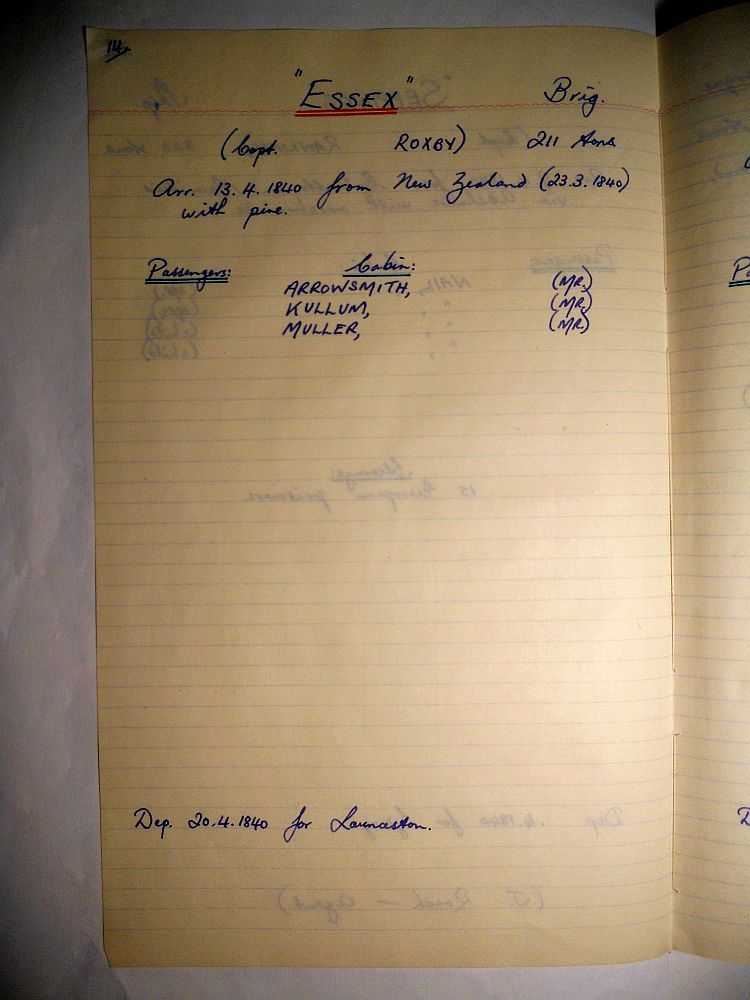 14.
"ESSEX" Brig.
(Capt. ROXBY) 211 tons
Arr. 13.4.1840 from New Zealand (23.3.1840)
with pine.
Passengers: Cabin:
ARROWSMITH, (MR.)
KULLUM, (MR.)
MULLER, (MR.)
Dep. 20.4.1840 for Launceston.